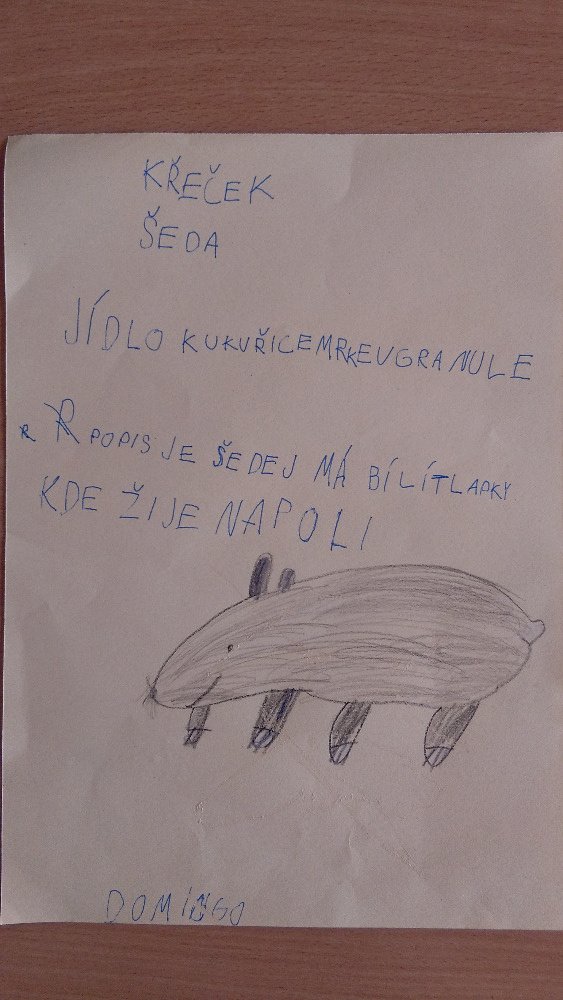 KŘEČEK
ŠEDA
JÍDLO KUKUŘICEMRKEVGRANULE
R R POPIS JE ŠEDEJ MÁ BÍLÍTLAPKY
KDE ŽIJE NAPOLI
DOMINGO